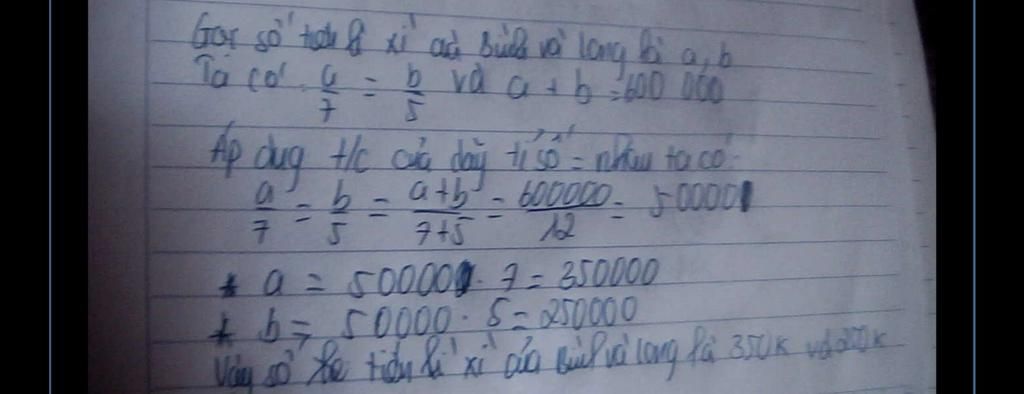 Gọi số tiền lì xì của Bình và Long là a, b
Ta có: a/7 = b/5 và a + b = 600 000
Áp dụg t/c của dãy tỉ số = nhau ta có:
a/7 = b/5 = a+b/7+5 = 600000/12 = 50000
* a = 50000 . 7 = 350000
* b = 50000 . 5 = 250000
Vậy số tiền lì xì của và Long là 350K và